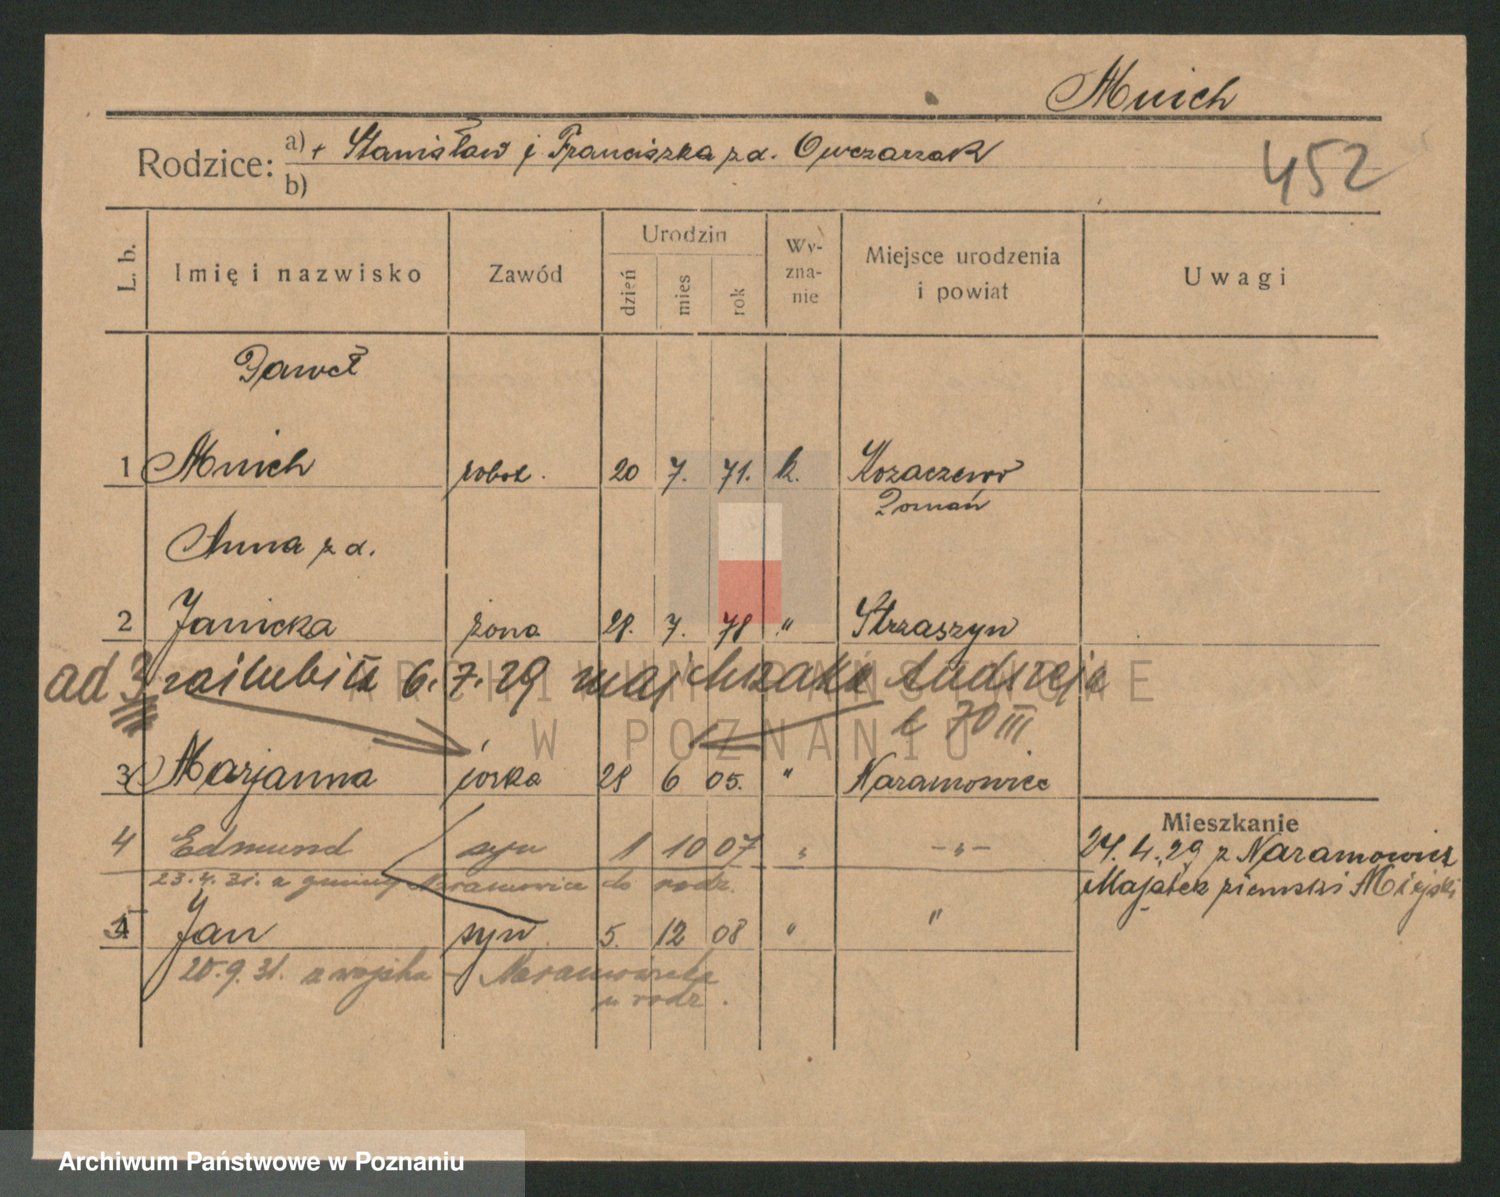 Mnich
Rodzice: a) + Stanisław i Franciszka z d. Owczarzak
b)
452
L. b. Imię i nazwisko Zawód Urodzin dzień mies rok Wy-zna-nie Miejsce urodzenia i powiat Uwagi
Paweł
1 Mnich robot. 20 7. 71. k. Kozaczewo
Poznań
Anna z d.
2 Janicka żona 28. 7. 78 " Strzaszyn
ad 3 zaślubiła 6.7.29 Majchrzaka Andrzeja
t 70 III
3 Marjanna córka 28 6 05. " Naramowice
Mieszkanie
4 Edmund syn 1 10 07 " -"-
24.4.29 z Naramowice
23.4.31. z gminy Naramowice do rodz.
Majątek ziemski Miejski
5 Jan syn 5. 12 08 " "
20.9.31. z wojska - Naramowicka
u rodz.
ARCHIWUM PAŃSTWOWE
W POZNANIU
Archiwum Państwowe w Poznaniu